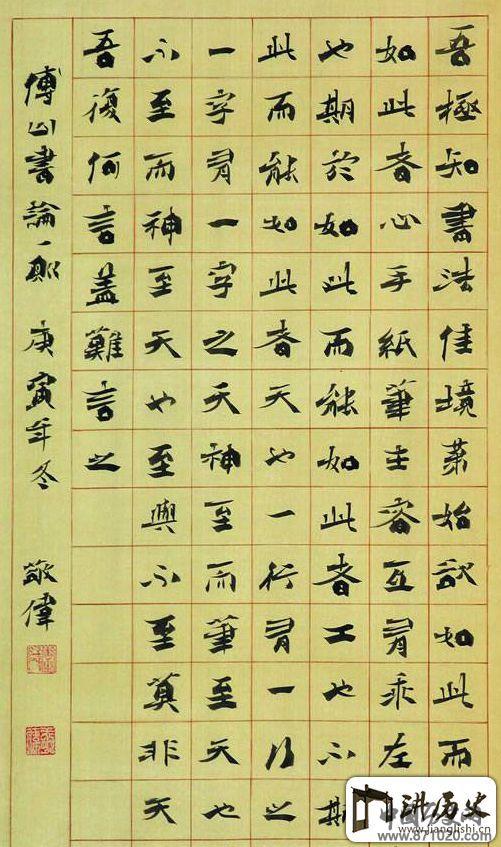 吾極知書法佳境苐始欲如此而
如此者心手紙筆主客互有乖左
也期於如此而能如此者工也不期
此而能如此者天也一行有一行之
一字有一字之天神至而筆至天也
不至而神至天也至與不至莫非天
吾復何言蓋難言之
傅山書論一則 庚寅年冬 敬偉
讲历史
www.jianglishi.cn
www.871020.com